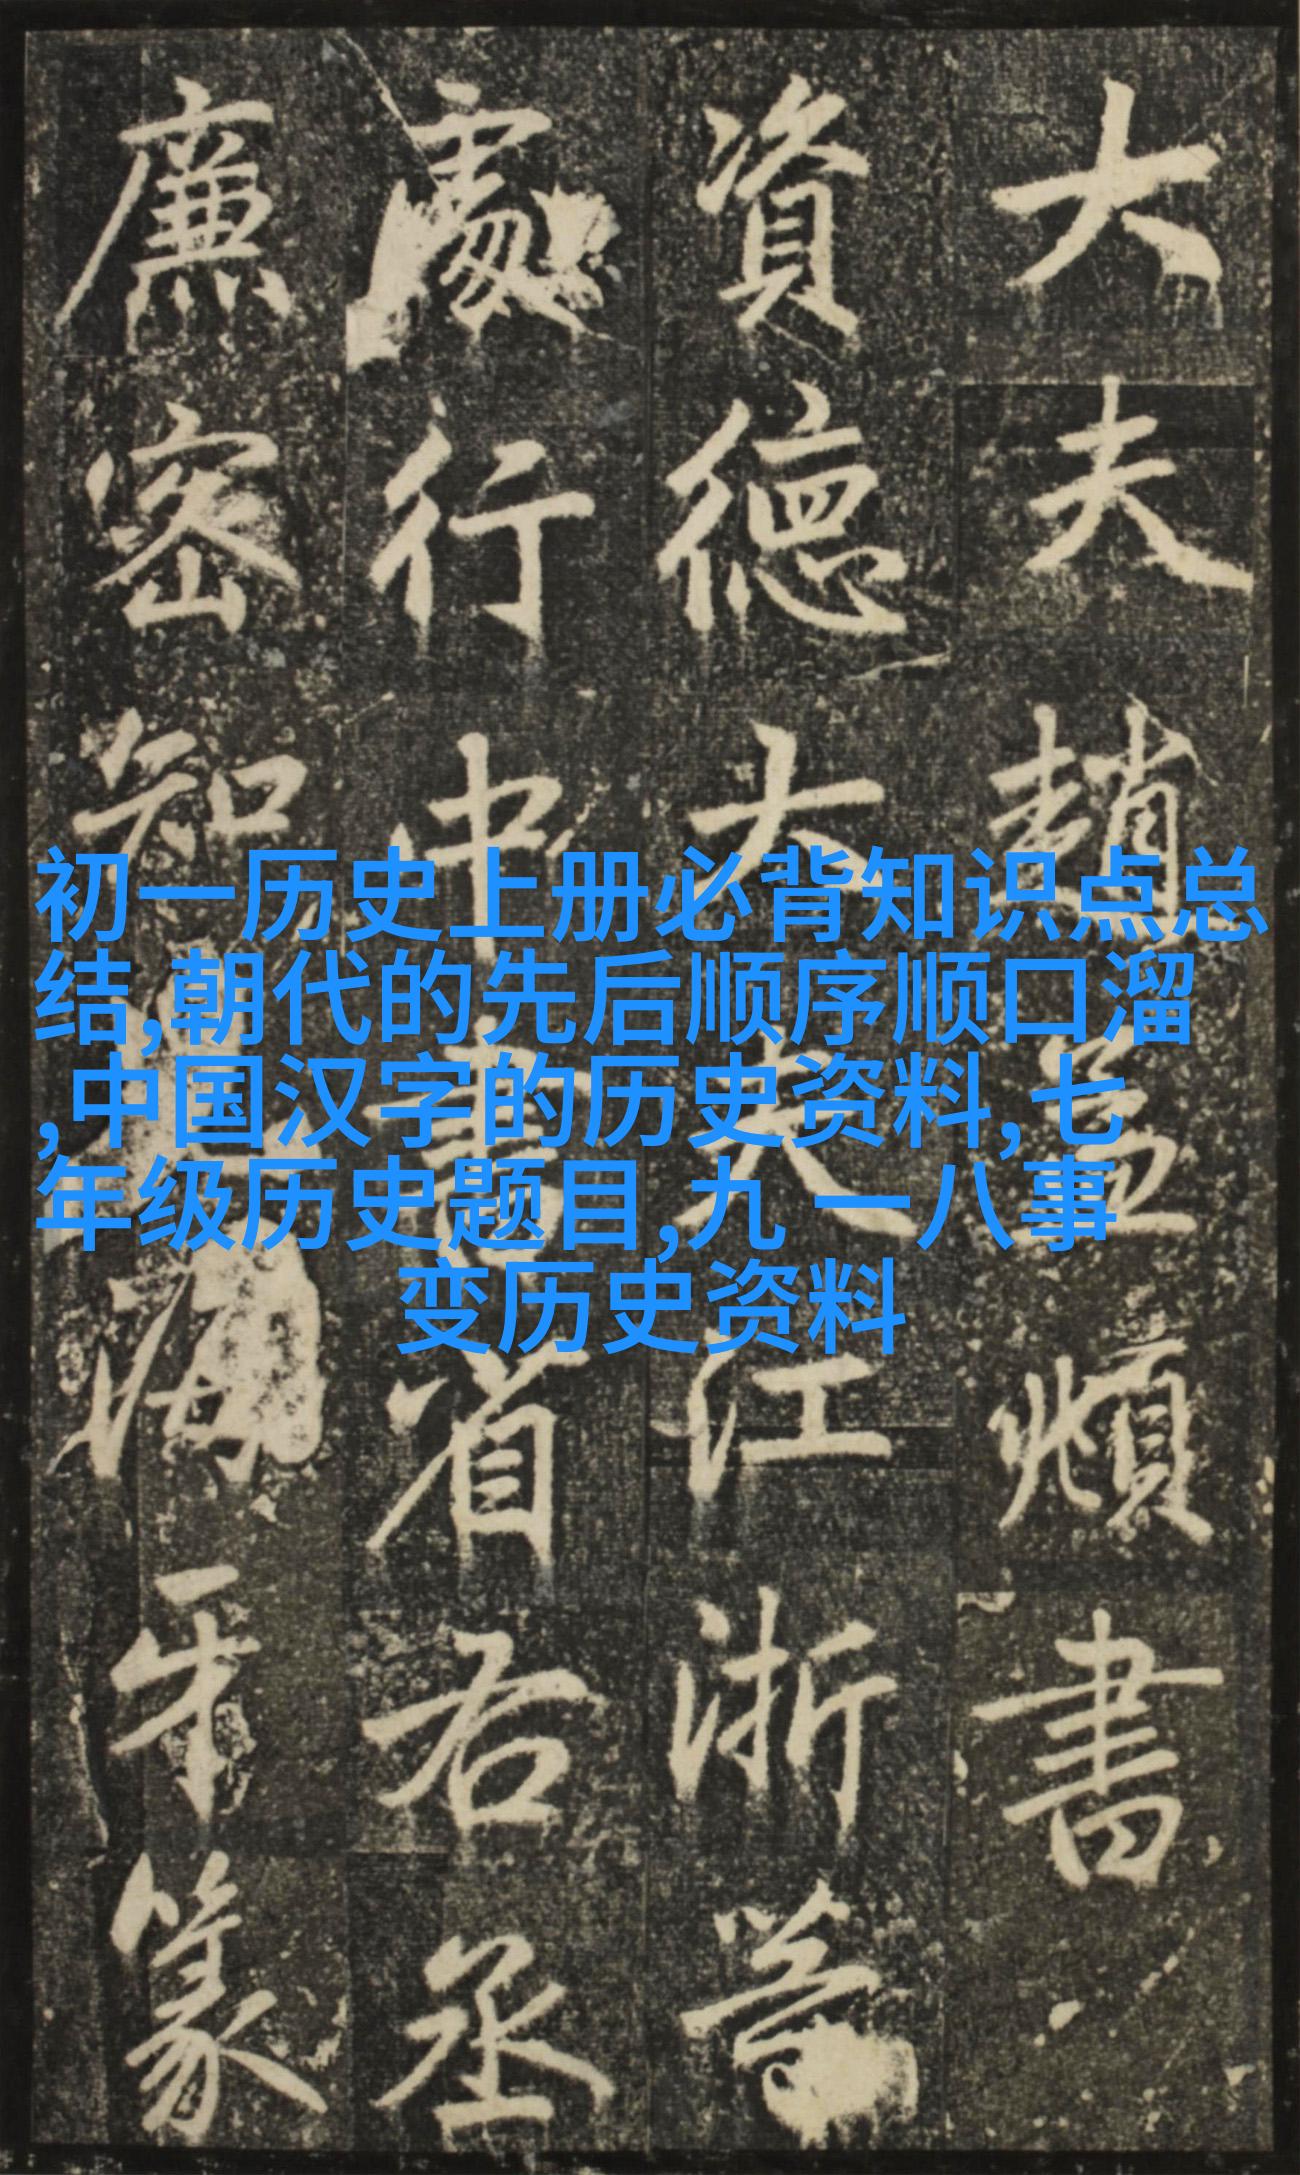 大夫趙孟頫書
資德大夫江浙等
處行中書省右丞
廉密知海牙篆
初一历史上册必背知识点总
结,朝代的先后顺序顺口溜
,中国汉字的历史资料,七
年级历史题目,九 一八事
变历史资料